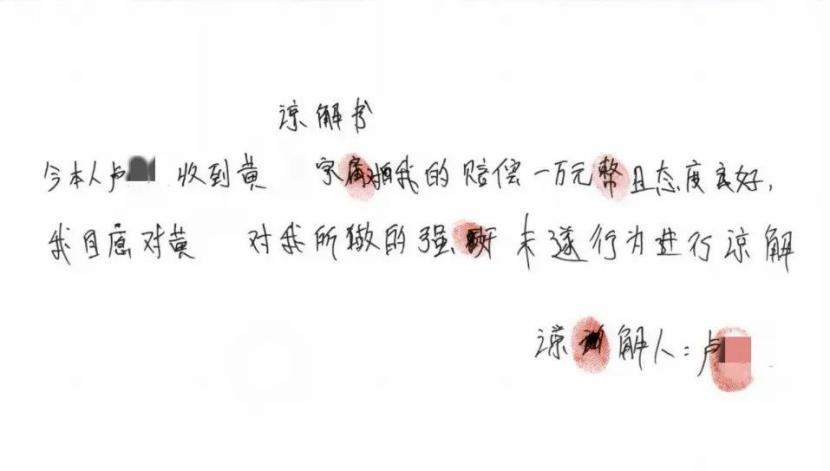 谅解书
今本人卢 收到黄 家属对我的赔偿一万元整且态度良好，
我自愿对黄 对我所做的强奸未遂行为进行谅解
谅解人：卢